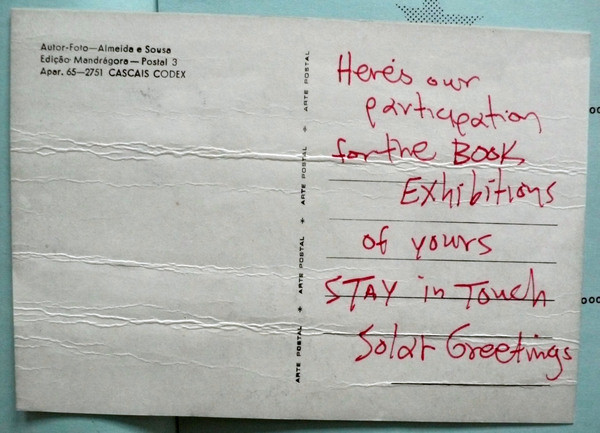 Autor-Foto—Almeida e Sousa
Edição Mandrágora—Postal 3
Apar. 65—2751 CASCAIS CODEX
ARTE POSTAL + ARTE POSTAL + ARTE POSTAL + ARTE POSTAL + ARTE POSTAL
Here's our
participation
for the BOOK
EXHibitions
of yours
STAY in Touch
Solar Greetings